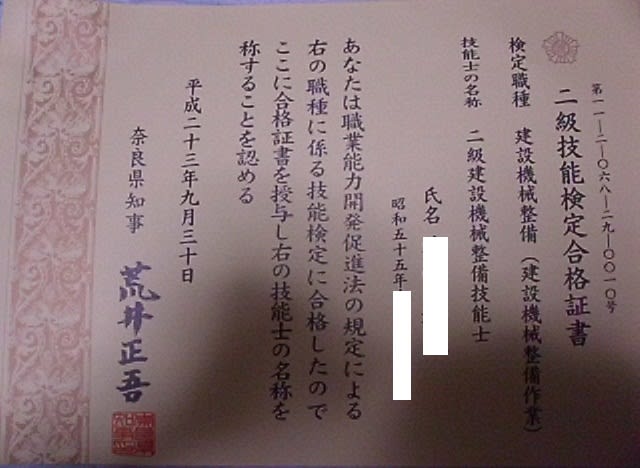 第一一―二―〇六八―二九―〇〇一〇号
二級技能検定合格証書
検定職種 建設機械整備（建設機械整備作業）
技能士の名称 二級建設機械整備技能士
氏名
昭和五十五年
あなたは職業能力開発促進法の規定による
右の職種に係る技能検定に合格したので
ここに合格証書を授与し右の技能士の名称を
称することを認める
平成二十三年九月三十日
奈良県知事 荒井正吾